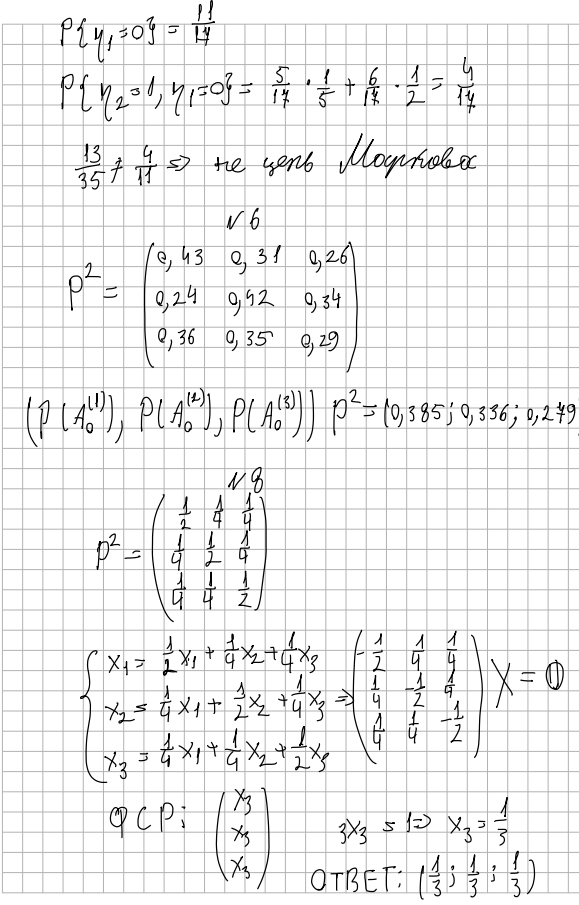 P{η₁=0} = 11/17
P{η₂=1, η₁=0} = 5/17 · 1/5 + 6/17 · 1/2 = 4/17
13/35 ≠ 4/11 => не цепь Маркова
№6
P² = (0,43 0,31 0,26
0,24 0,42 0,34
0,36 0,35 0,29)
(P(A₀⁽¹⁾), P(A₀⁽²⁾), P(A₀⁽³⁾)) P² = (0,385; 0,336; 0,279)
№8
P² = (1/2 1/4 1/4
1/4 1/2 1/4
1/4 1/4 1/2)
{ x₁ = 1/2 x₁ + 1/4 x₂ + 1/4 x₃
x₂ = 1/4 x₁ + 1/2 x₂ + 1/4 x₃ =>
x₃ = 1/4 x₁ + 1/4 x₂ + 1/2 x₃
(-1/2 1/4 1/4
1/4 -1/2 1/4
1/4 1/4 -1/2) X = 0
ФСР: (x₃
x₃
x₃)
3x₃ = 1 => x₃ = 1/3
ОТВЕТ: (1/3; 1/3; 1/3)